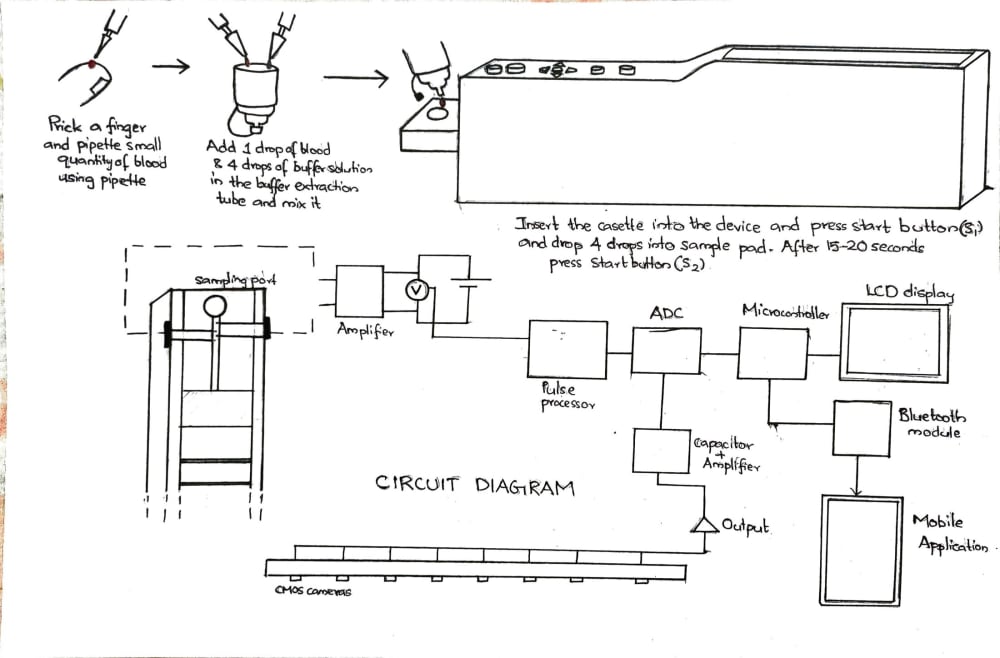 Prick a finger
and pipette small
quantity of blood
using pipette
Add 1 drop of blood
& 4 drops of buffer solution
in the buffer extraction
tube and mix it
Insert the casette into the device and press start button(S1)
and drop 4 drops into sample pad. After 15-20 seconds
press Start button(S2)
Sampling port
Amplifier
V
Pulse
processor
ADC
Microcontroller
LCD display
Bluetooth
module
Capacitor
+
Amplifier
CIRCUIT DIAGRAM
Output
Mobile
Application
CMOS cameras